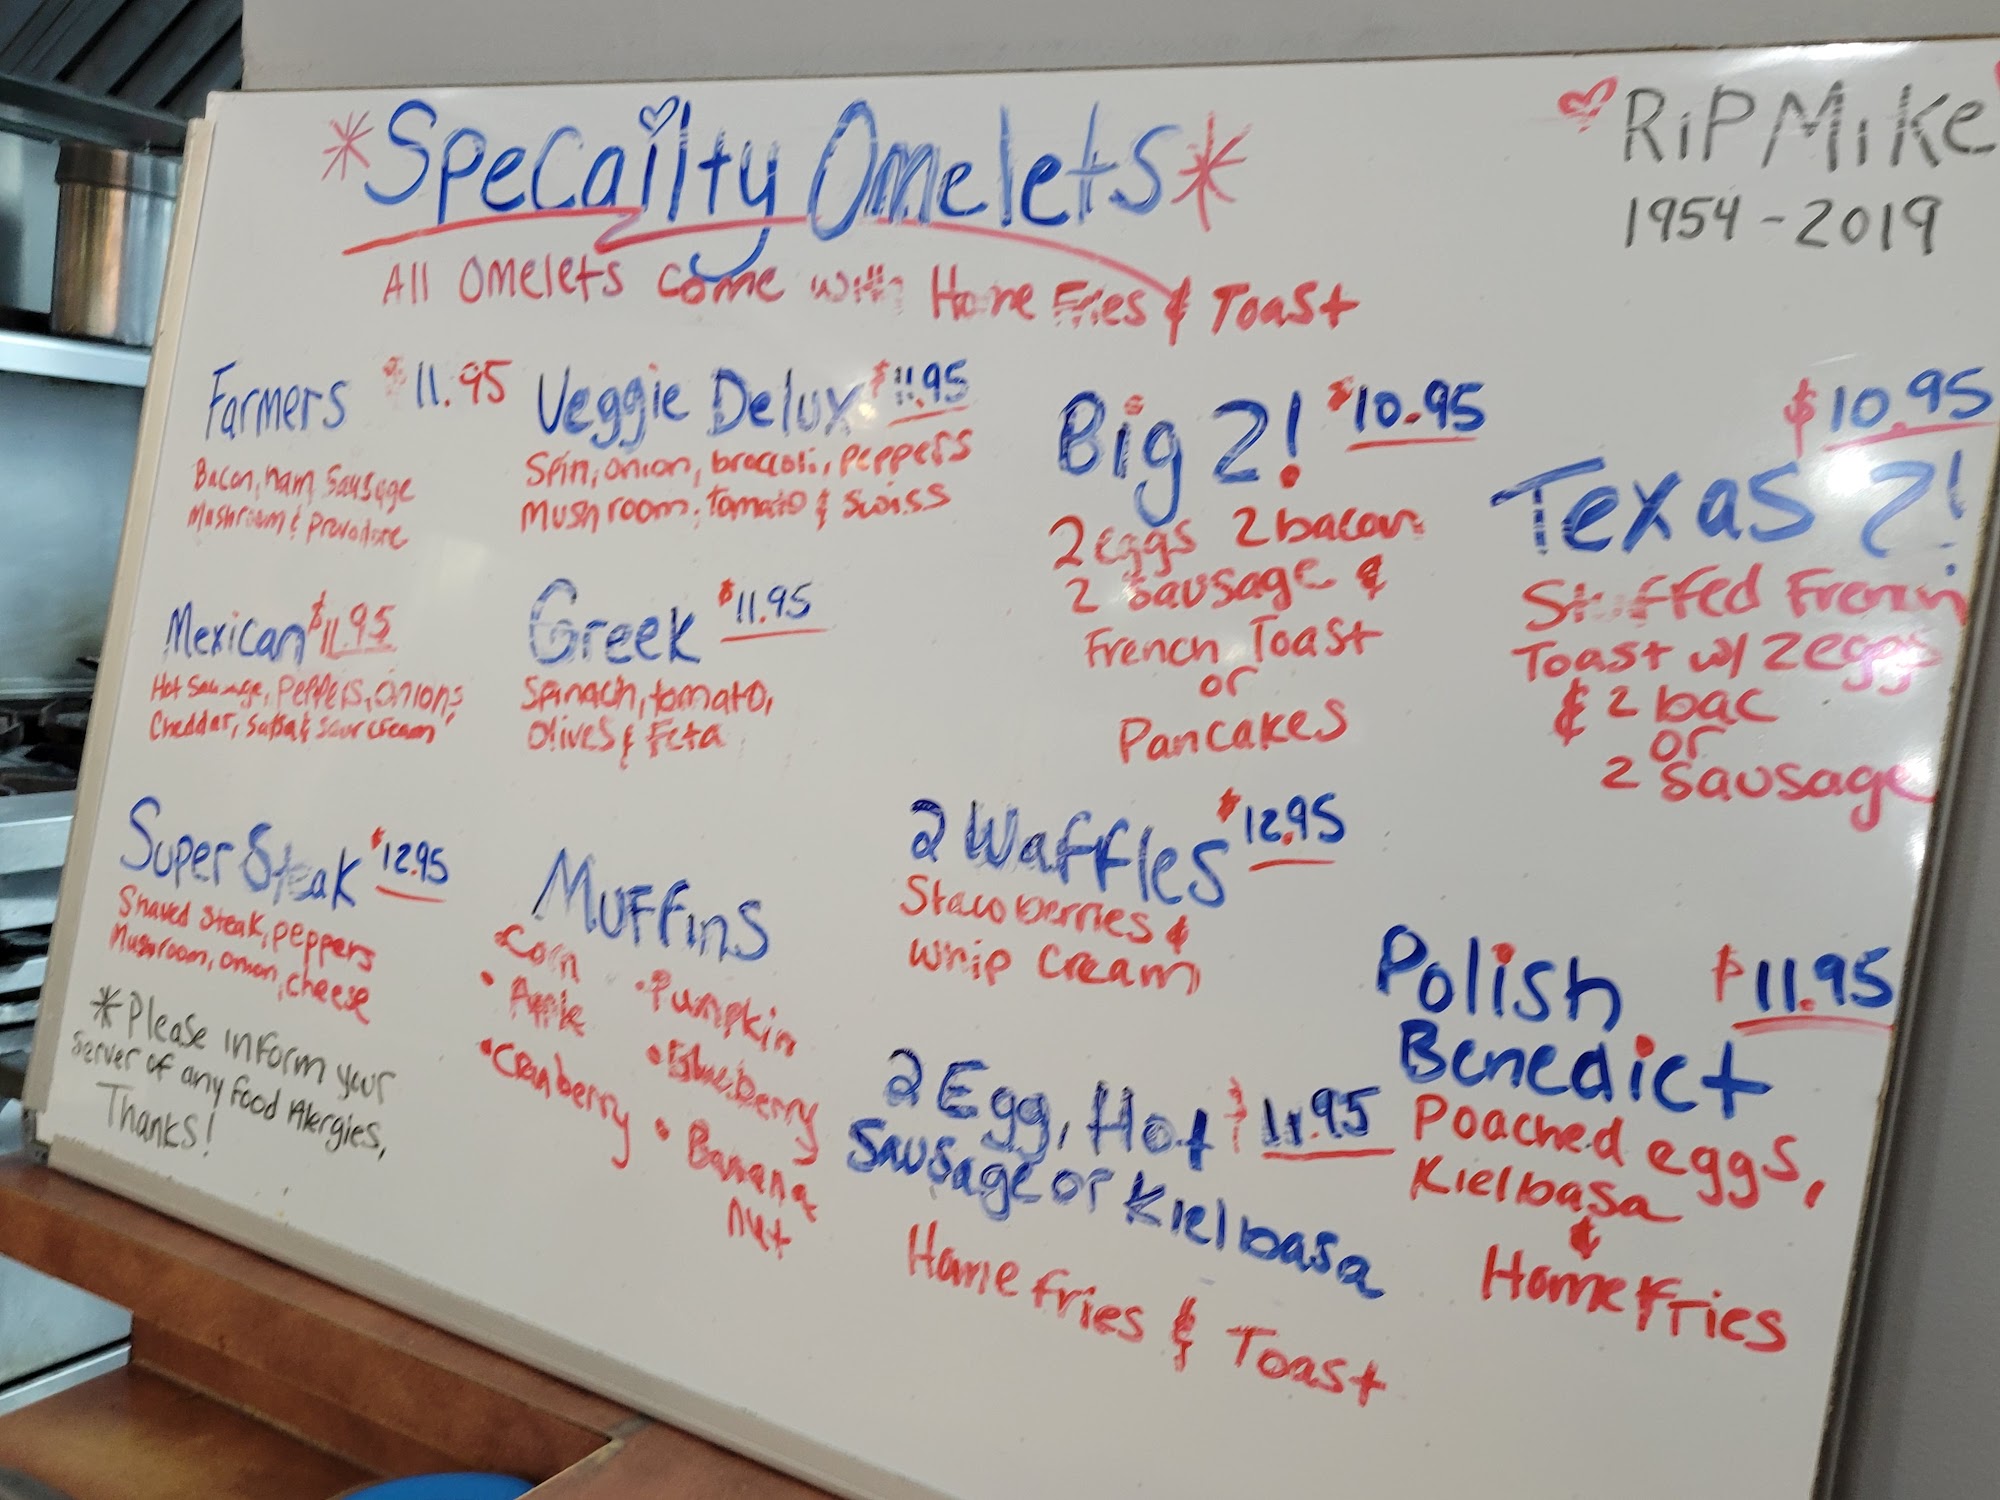 *Specailty Omelets*
All Omelets come with Home Fries & Toast
RiP Mike
1954-2019
Farmers $11.95
Bacon, ham, Sausage
Mushroom & Provolone
Veggie Delux $11.95
Spin, onion, broccoli, peppers
Mushroom, tomato & Swiss
Mexican $11.95
Hot Sausage, Peppers, onions,
Cheddar, Salsa & Sour cream
Greek $11.95
Spinach, tomato,
Olives & Feta
Super Steak $12.95
Shaved Steak, peppers
Mushroom, onion, cheese
*Please inform your
Server of any Food Alergies,
Thanks!
Muffins
•Corn
•Apple
•Cranberry
•Pumpkin
•Blueberry
•Banana
nut
Big 2! $10.95
2 eggs 2 bacon
2 Sausage &
French Toast
or
Pancakes
$10.95
Texas 2!
Stuffed French
Toast w/ 2 eggs
& 2 bac
or
2 Sausage
2 Waffles $12.95
Stawberries &
Whip Cream
2 Egg, Hot $11.95
Sausage or Kielbasa
Home fries & Toast
Polish $11.95
Benedict
Poached eggs,
Kielbasa
&
Home Fries